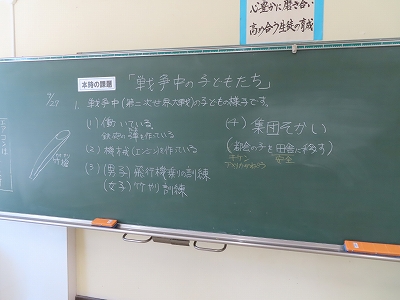 心豊かに磨き合い
高め合う生徒の育成
本時の課題
「戦争中の子どもたち」
7/27
1. 戦争中(第二次世界大戦)の子どもの様子です。
(1) 働いている
鉄砲の弾を作っている
(2) 機械(エンジン)を作っている
(3) (男子) 飛行機乗りの訓練
(女子) 竹やり訓練
(4) 集団そかい
(都会の子を田舎に移す)
キケン
安全
竹槍